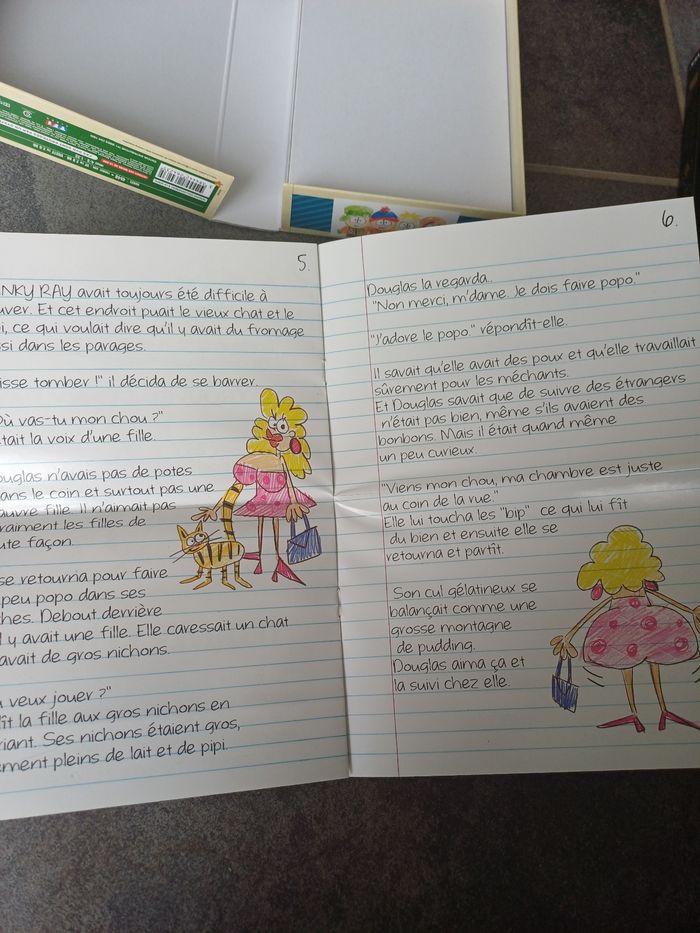 5.
NKY RAY avait toujours été difficile à
uver. Et cet endroit puait le vieux chat et le
i, ce qui voulait dire qu'il y avait du fromage
ssi dans les parages.
isse tomber !" il décida de se barrer.
Où vas-tu mon chou ?"
tait la voix d'une fille.
ouglas n'avais pas de potes
ans le coin et surtout pas une
auvre fille. Il n'aimait pas
raiment les filles de
ute façon.
se retourna pour faire
peu popo dans ses
ches. Debout derrière
l y avait une fille. Elle caressait un chat
avait de gros nichons.
u veux jouer ?"
ît la fille aux gros nichons en
riant. Ses nichons étaient gros,
ement pleins de lait et de pipi.
6.
Douglas la regarda..
"Non merci, m'dame. Je dois faire popo."
"J'adore le popo." répondît-elle.
Il savait qu'elle avait des poux et qu'elle travaillait
sûrement pour les méchants.
Et Douglas savait que de suivre des étrangers
n'était pas bien, même s'ils avaient des
bonbons. Mais il était quand même
un peu curieux.
"Viens mon chou, ma chambre est juste
au coin de la vue."
Elle lui toucha les "bip" ce qui lui fît
du bien et ensuite elle se
retourna et partît.
Son cul gélatineux se
balançait comme une
grosse montagne
de pudding.
Douglas aima ça et
la suivi chez elle.